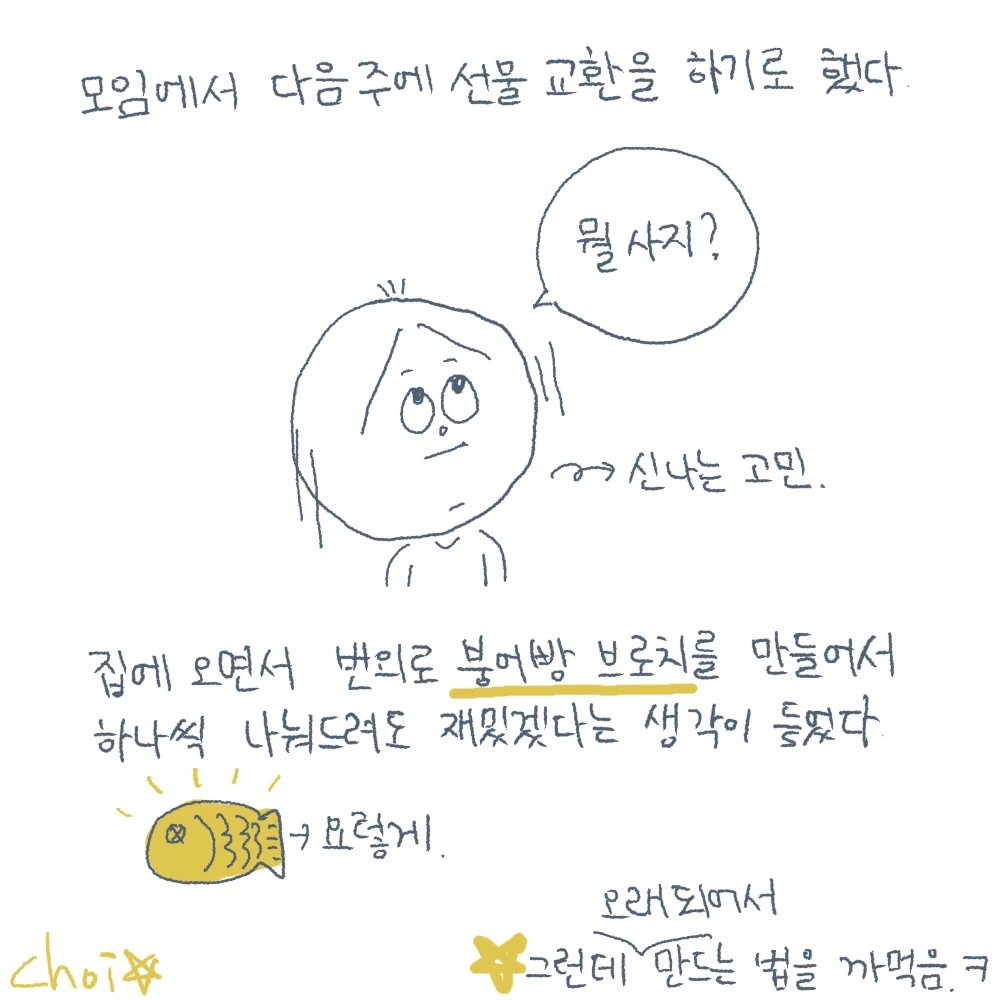 모임에서 다음주에 선물 교환을 하기로 했다.
뭘 사지?
신나는 고민.
집에 오면서 번외로 붕어빵 브로치를 만들어서
하나씩 나눠드려도 재밌겠다는 생각이 들었다
요렇게.
오래되어서
그런데 만드는 법을 까먹음.ㅋ
choi